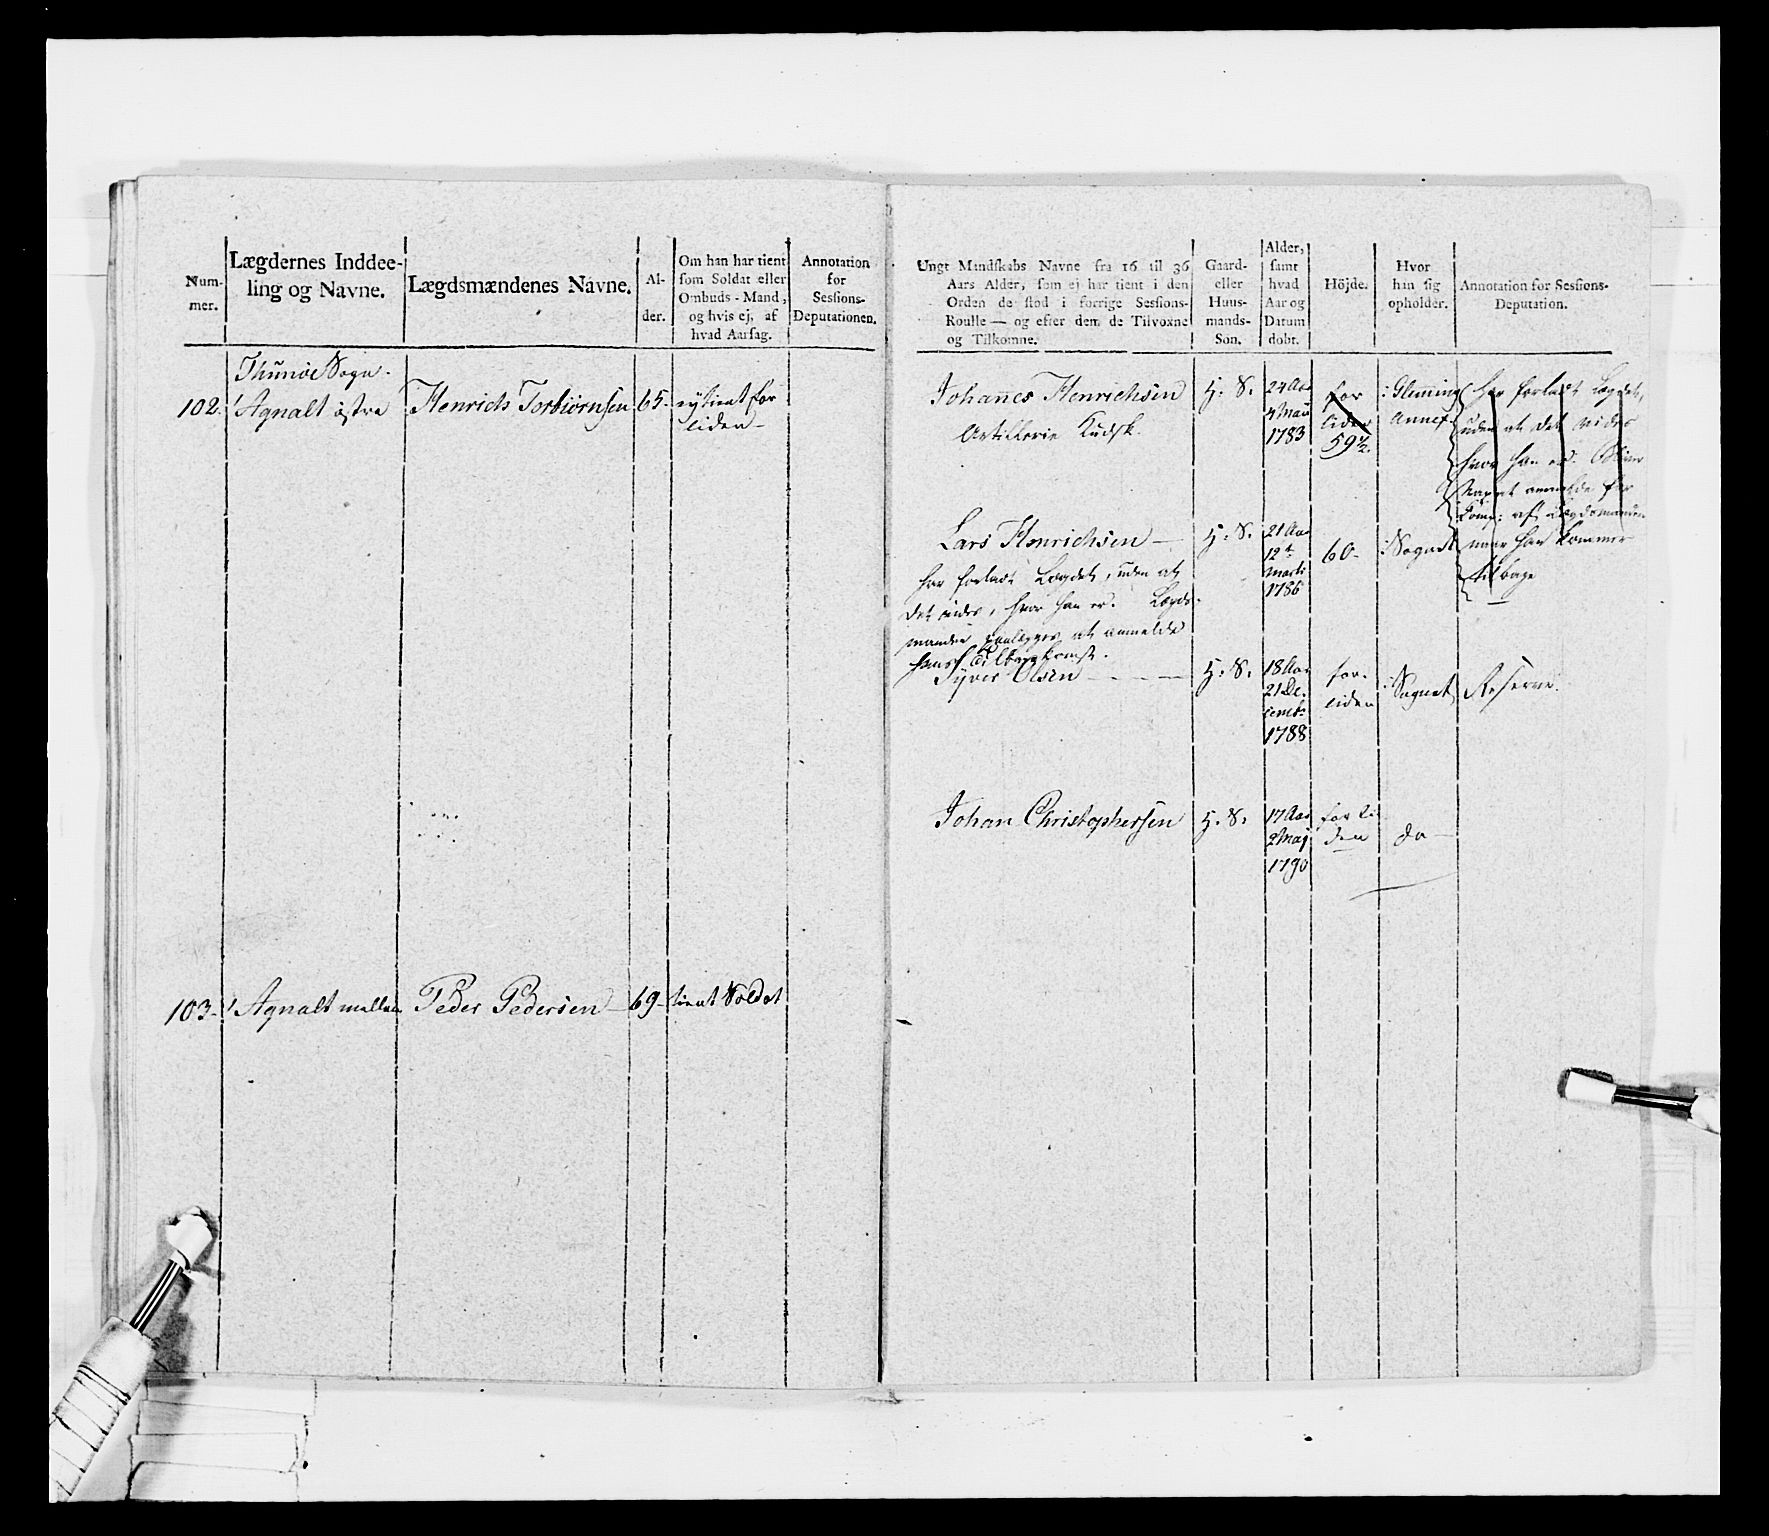 Num-
mer.
Lægdernes Inddee-
ling og Navne.
Lægdsmændenes Navne.
Al-
der.
Om han har tient
som Soldat eller
Ombuds-Mand,
og hvis ej, af
hvad Aarsag.
Annotation
for
Sessions-
Deputationen.
Thunøe Sogn.
102. Agnalt østre
Henrich Torbiörnsen
65.
ej tient for
liden
103. Agnalt mellem
Peder Pedersen
69
tient Soldat
Ungt Mandskabs Navne fra 16 til 36
Aars Alder, som ej har tient i den
Orden de stod i forrige Sessions-
Roulle — og efter dem de Tilvoxne
og Tilkomne.
Gaard-
eller
Huus-
mands-
Søn.
Alder,
samt
hvad
Aar og
Datum
døbt.
Höjde.
Hvor
han sig
opholder.
Annotation for Sessions-
Deputation.
Johannes Henrichsen
Artillerie Kudsk.
H. S.
24 Aar
4 Maii
1783
for
liden
59½.
Glemming
Annex
har forladt Lægdet,
uden at det vides
hvor han er.
af Lægdsmanden
naar han kommer
tilbage
Lars Henrichsen
H. S.
21 Aar
12te
Marti
1786
60
Sognet
har forladt Lægdet, uden at
det vides, hvor han er. Lægds-
manden paalegges at anmelde
hans tilbagekomst.
Syver Olsen
H. S.
18 Aar
21 De-
cembr
1788
for-
liden
Sognet
Reserve.
Johan Christophersen
H. S.
17 Aar
2 Maj
1790
for li
den
do